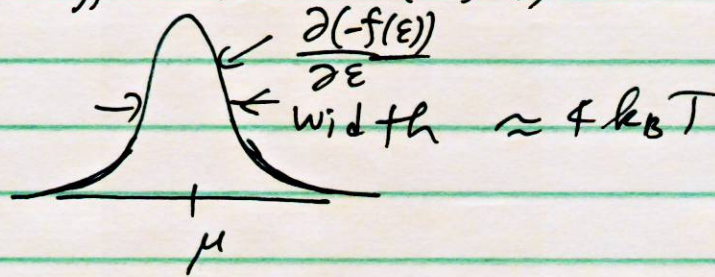 ∂(-f(ε))
∂ε
width ≈ 4 k_B T
μ